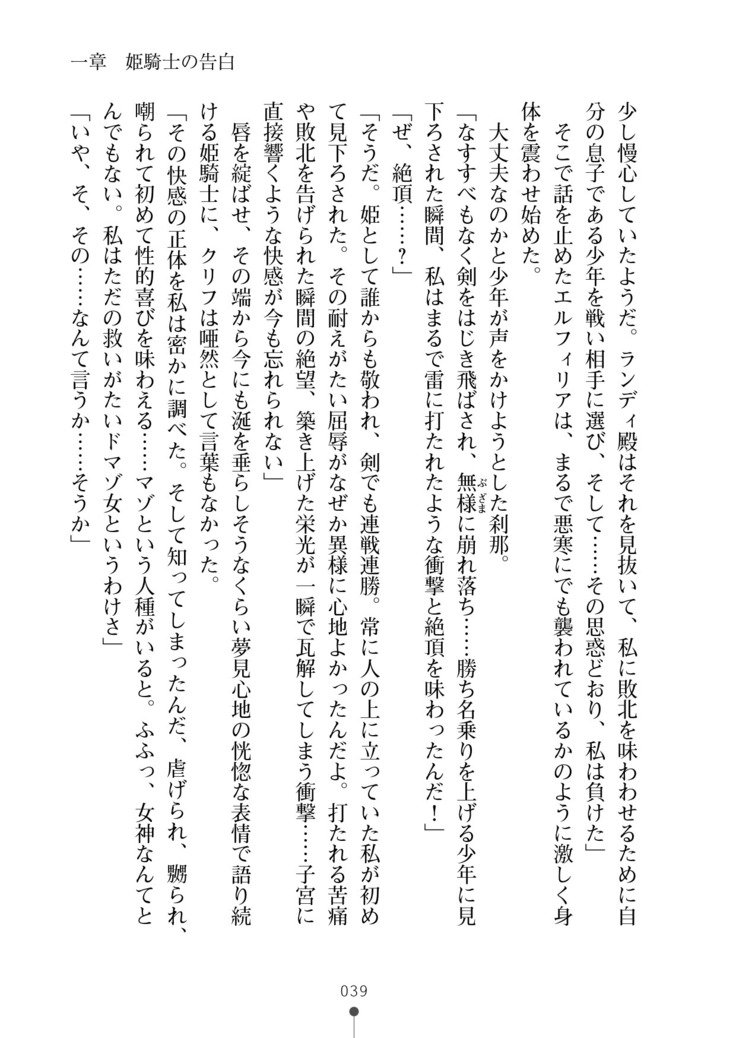 一章　姫騎士の告白
少し慢心していたようだ。ランディ殿はそれを見抜いて、私に敗北を味わわせるために自
分の息子である少年を戦い相手に選び、そして……その思惑どおり、私は負けた」
　そこで話を止めたエルフィリアは、まるで悪寒にでも襲われているかのように激しく身
体を震わせ始めた。
　大丈夫なのかと少年が声をかけようとした刹那。
「なすすべもなく剣をはじき飛ばされ、無様に崩れ落ち……勝ち名乗りを上げる少年に見
ぶざま
下ろされた瞬間、私はまるで雷に打たれたような衝撃と絶頂を味わったんだ！」
「ぜ、絶頂……？」
「そうだ。姫として誰からも敬われ、剣でも連戦連勝。常に人の上に立っていた私が初め
て見下ろされた。その耐えがたい屈辱がなぜか異様に心地よかったんだよ。打たれる苦痛
や敗北を告げられた瞬間の絶望、築き上げた栄光が一瞬で瓦解してしまう衝撃……子宮に
直接響くような快感が今も忘れられない」
　唇を綻ばせ、その端から今にも涎を垂らしそうなくらい夢見心地の恍惚な表情で語り続
ける姫騎士に、クリフは唖然として言葉もなかった。
「その快感の正体を私は密かに調べた。そして知ってしまったんだ、虐げられ、嬲られ、
嘲られて初めて性的喜びを味わえる……マゾという人種がいると。ふふっ、女神なんてと
んでもない。私はただの救いがたいドマゾ女というわけさ」
「いや、そ、その……なんて言うか……そうか」
039